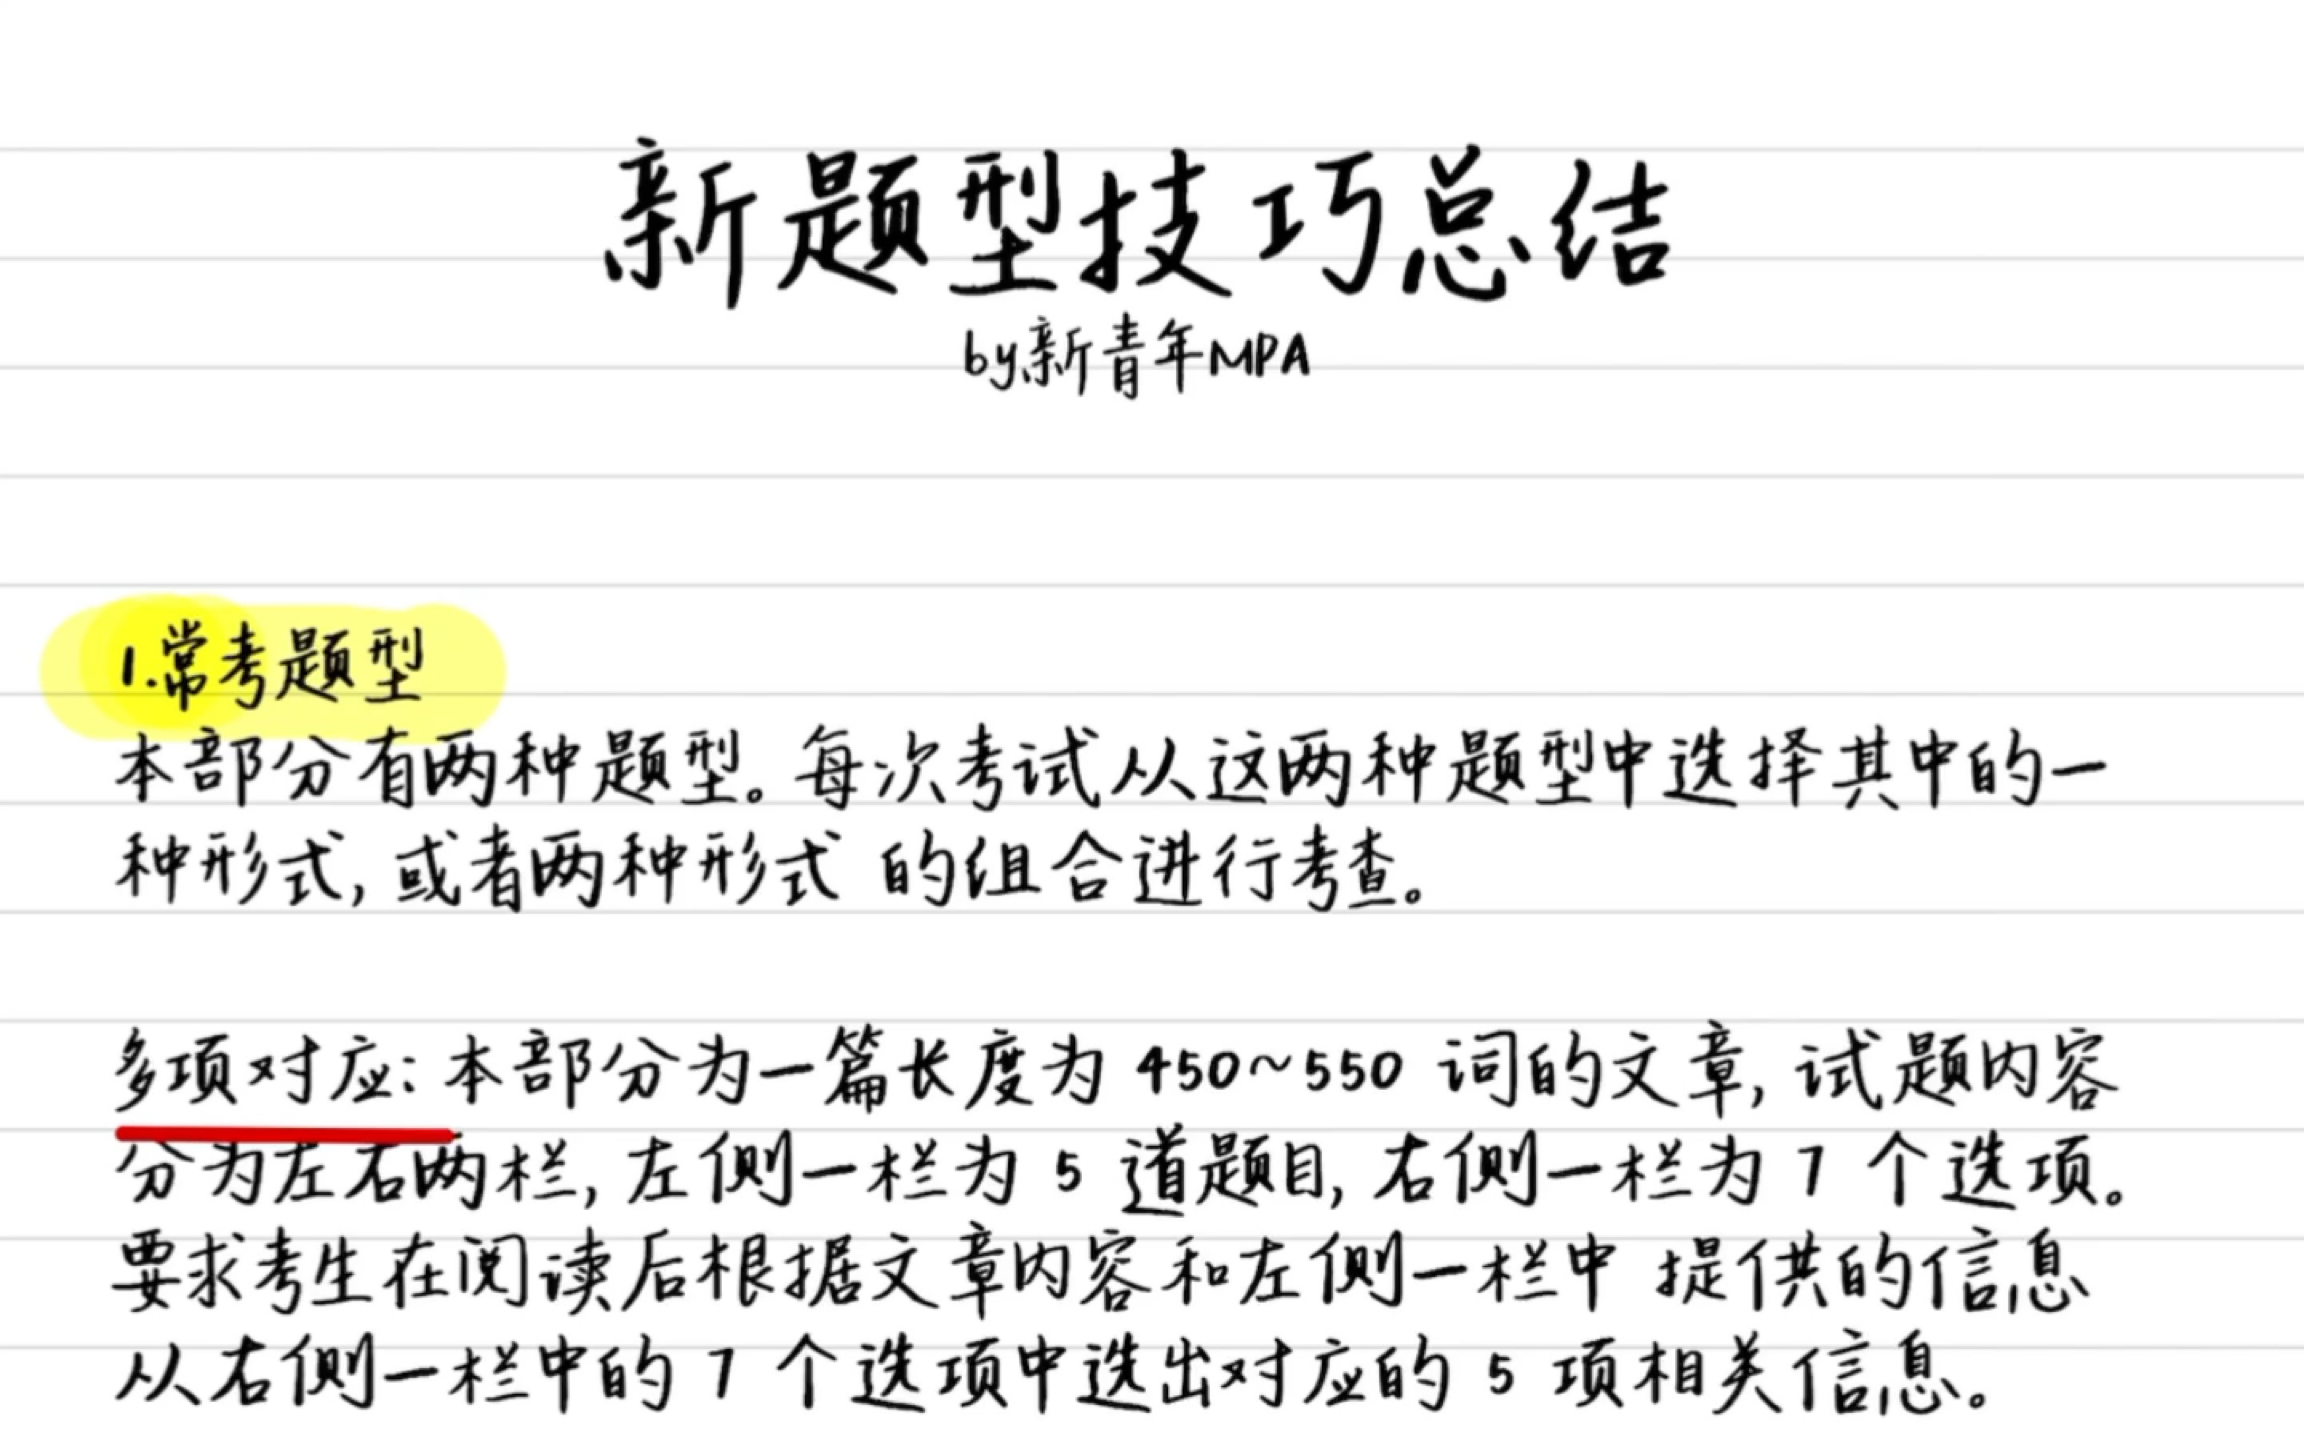 新题型技巧总结
by新青年MPA
1.常考题型
本部分有两种题型。每次考试从这两种题型中选择其中的一
种形式,或者两种形式 的组合进行考查。
多项对应:本部分为一篇长度为 450~550 词的文章,试题内容
分为左右两栏,左侧一栏为 5 道题目,右侧一栏为 7 个选项。
要求考生在阅读后根据文章内容和左侧一栏中 提供的信息
从右侧一栏中的 7 个选项中选出对应的 5 项相关信息。